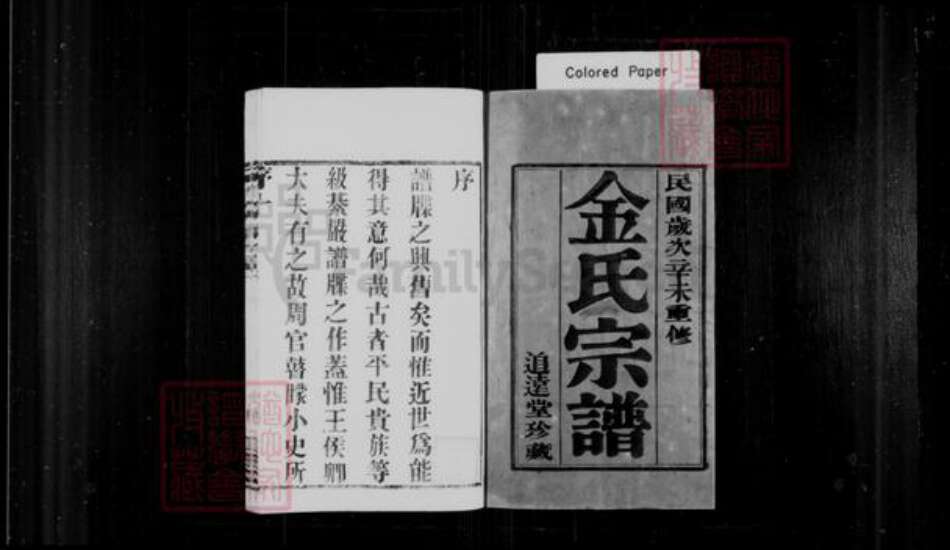 Colored Paper
民國歲次辛未重修
金氏宗譜
追遠堂珍藏
序
譜牒之興舊矣而惟近世爲能
得其意何哉古者平民貴族等
級綦嚴譜牒之作蓋惟王侯卿
大夫有之故周官瞽矇小史所
FamilySe